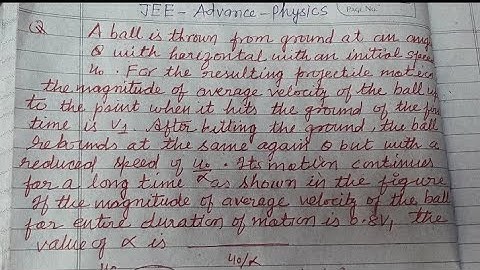 JEE - Advance - Physics
Page No.
Q A ball is thrown from ground at an ang
θ with horizontal with an initial spee
u₀. For the resulting projectile motion
the magnitude of average velocity of the ball up
to the point when it hits the ground of the
time is V₁. After hitting the ground, the ball
rebounds at the same again θ but with a
reduced speed of u₀/α. Its motion continues
for a long time as shown in the figure
If the magnitude of average velocity of the ball
for entire duration of motion is 0.8V₁ the
value of α is
u₀/α